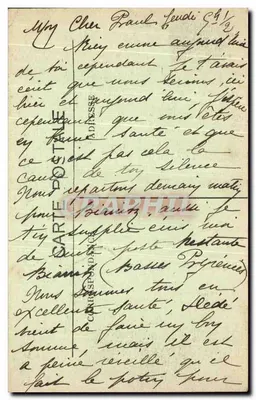 Mon Cher Paul Jeudi 9h 1/2
Rien encore aujourd'hui
de toi cependant je t'avais
écrit que nous serions ici
hier et aujourd'hui J'espère
cependant que vous êtes
en bonne santé et que
ce n'est pas cela la
cause de ton silence
Nous repartons demain matin
pour aussi je
t'en supplie écris moi
de suite poste Restante
(Basses Pyrénées)
Nous sommes tous en
excellente santé, Dédé
vient de faire un bon
somme, mais il est
à peine réveillé qu'il
fait le pour
CARTE POSTALE
ADRESSE
CORRESPONDANCE